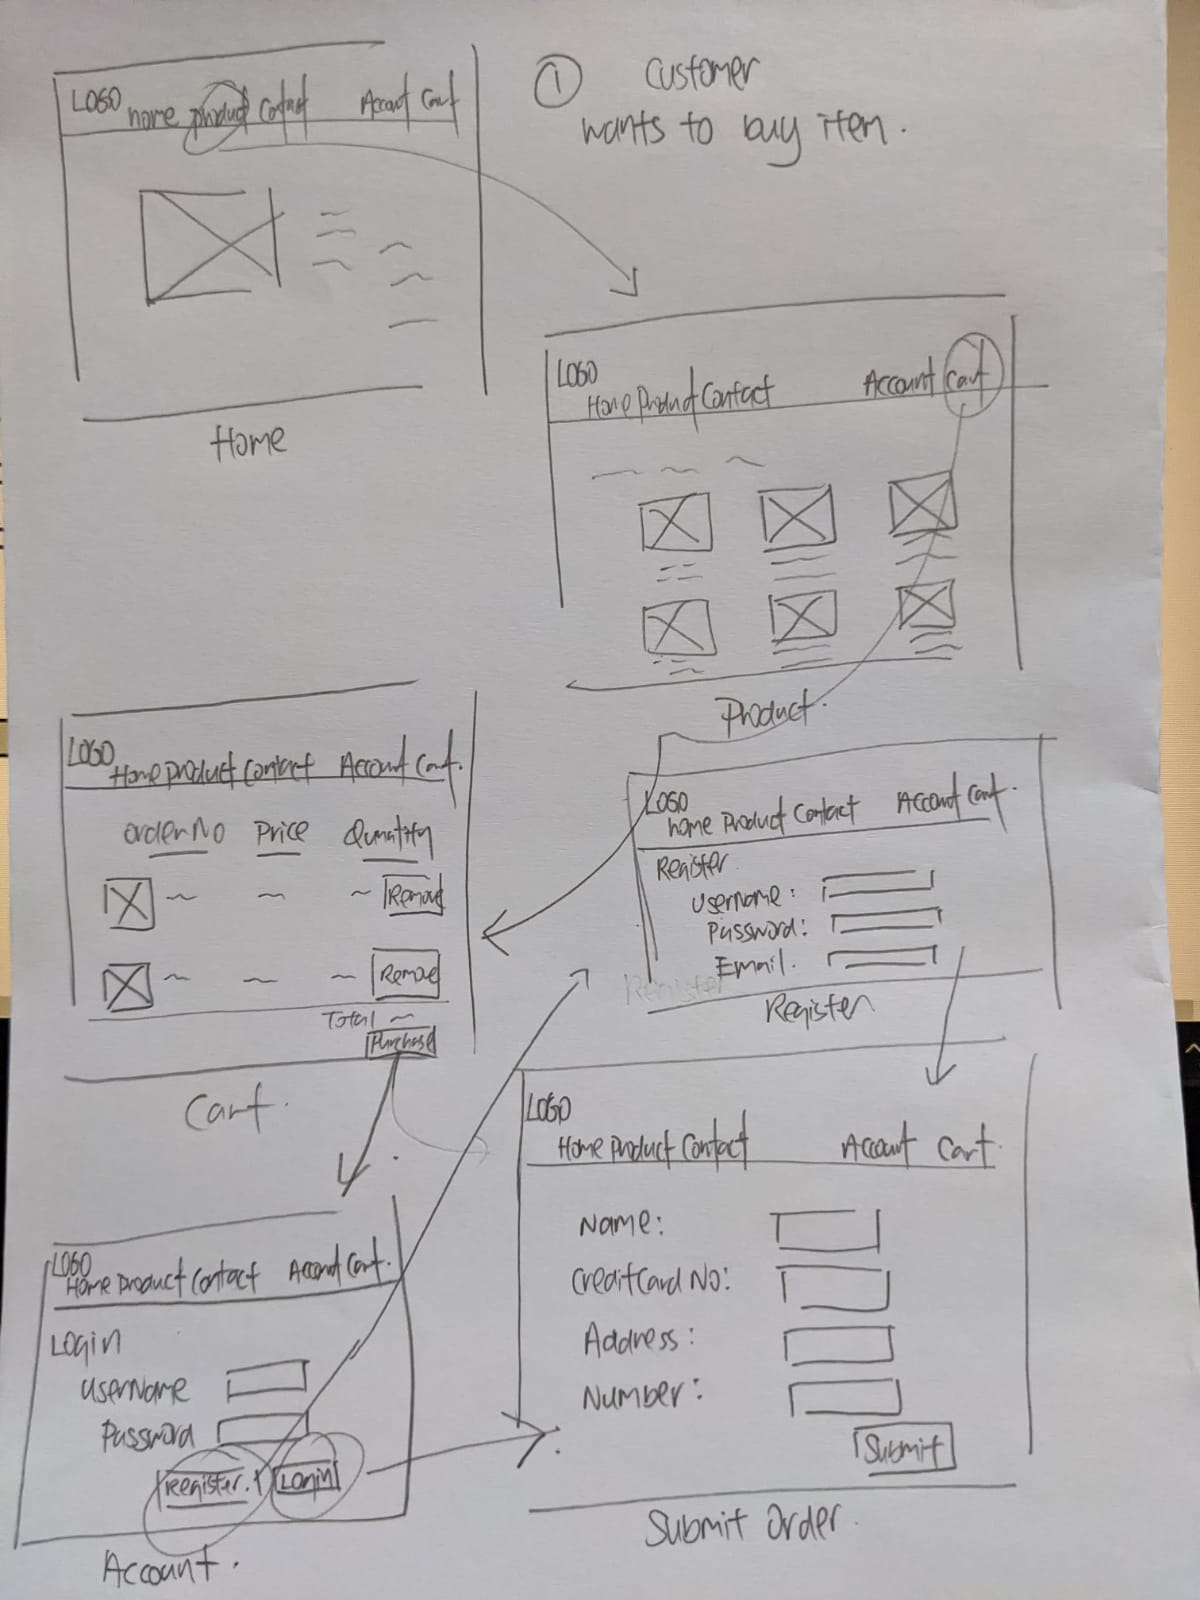 ① Customer
wants to buy item.
LOGO
home product Contact Account Cart
Home
LOGO
Home Product Contact Account Cart
Product.
LOGO
Home product Contact Account Cart.
Order No Price Quantity
Remove
Remove
Total
Purchase
Cart.
LOGO
home Product Contact Account Cart.
Register
Username:
Password:
Email.
Register
Register
LOGO
Home Product Contact Account Cart.
Login
UserName
Password
Register. Login
Account.
LOGO
Home Product Contact Account Cart.
Name:
CreditCard No:
Address:
Number:
Submit
Submit Order.